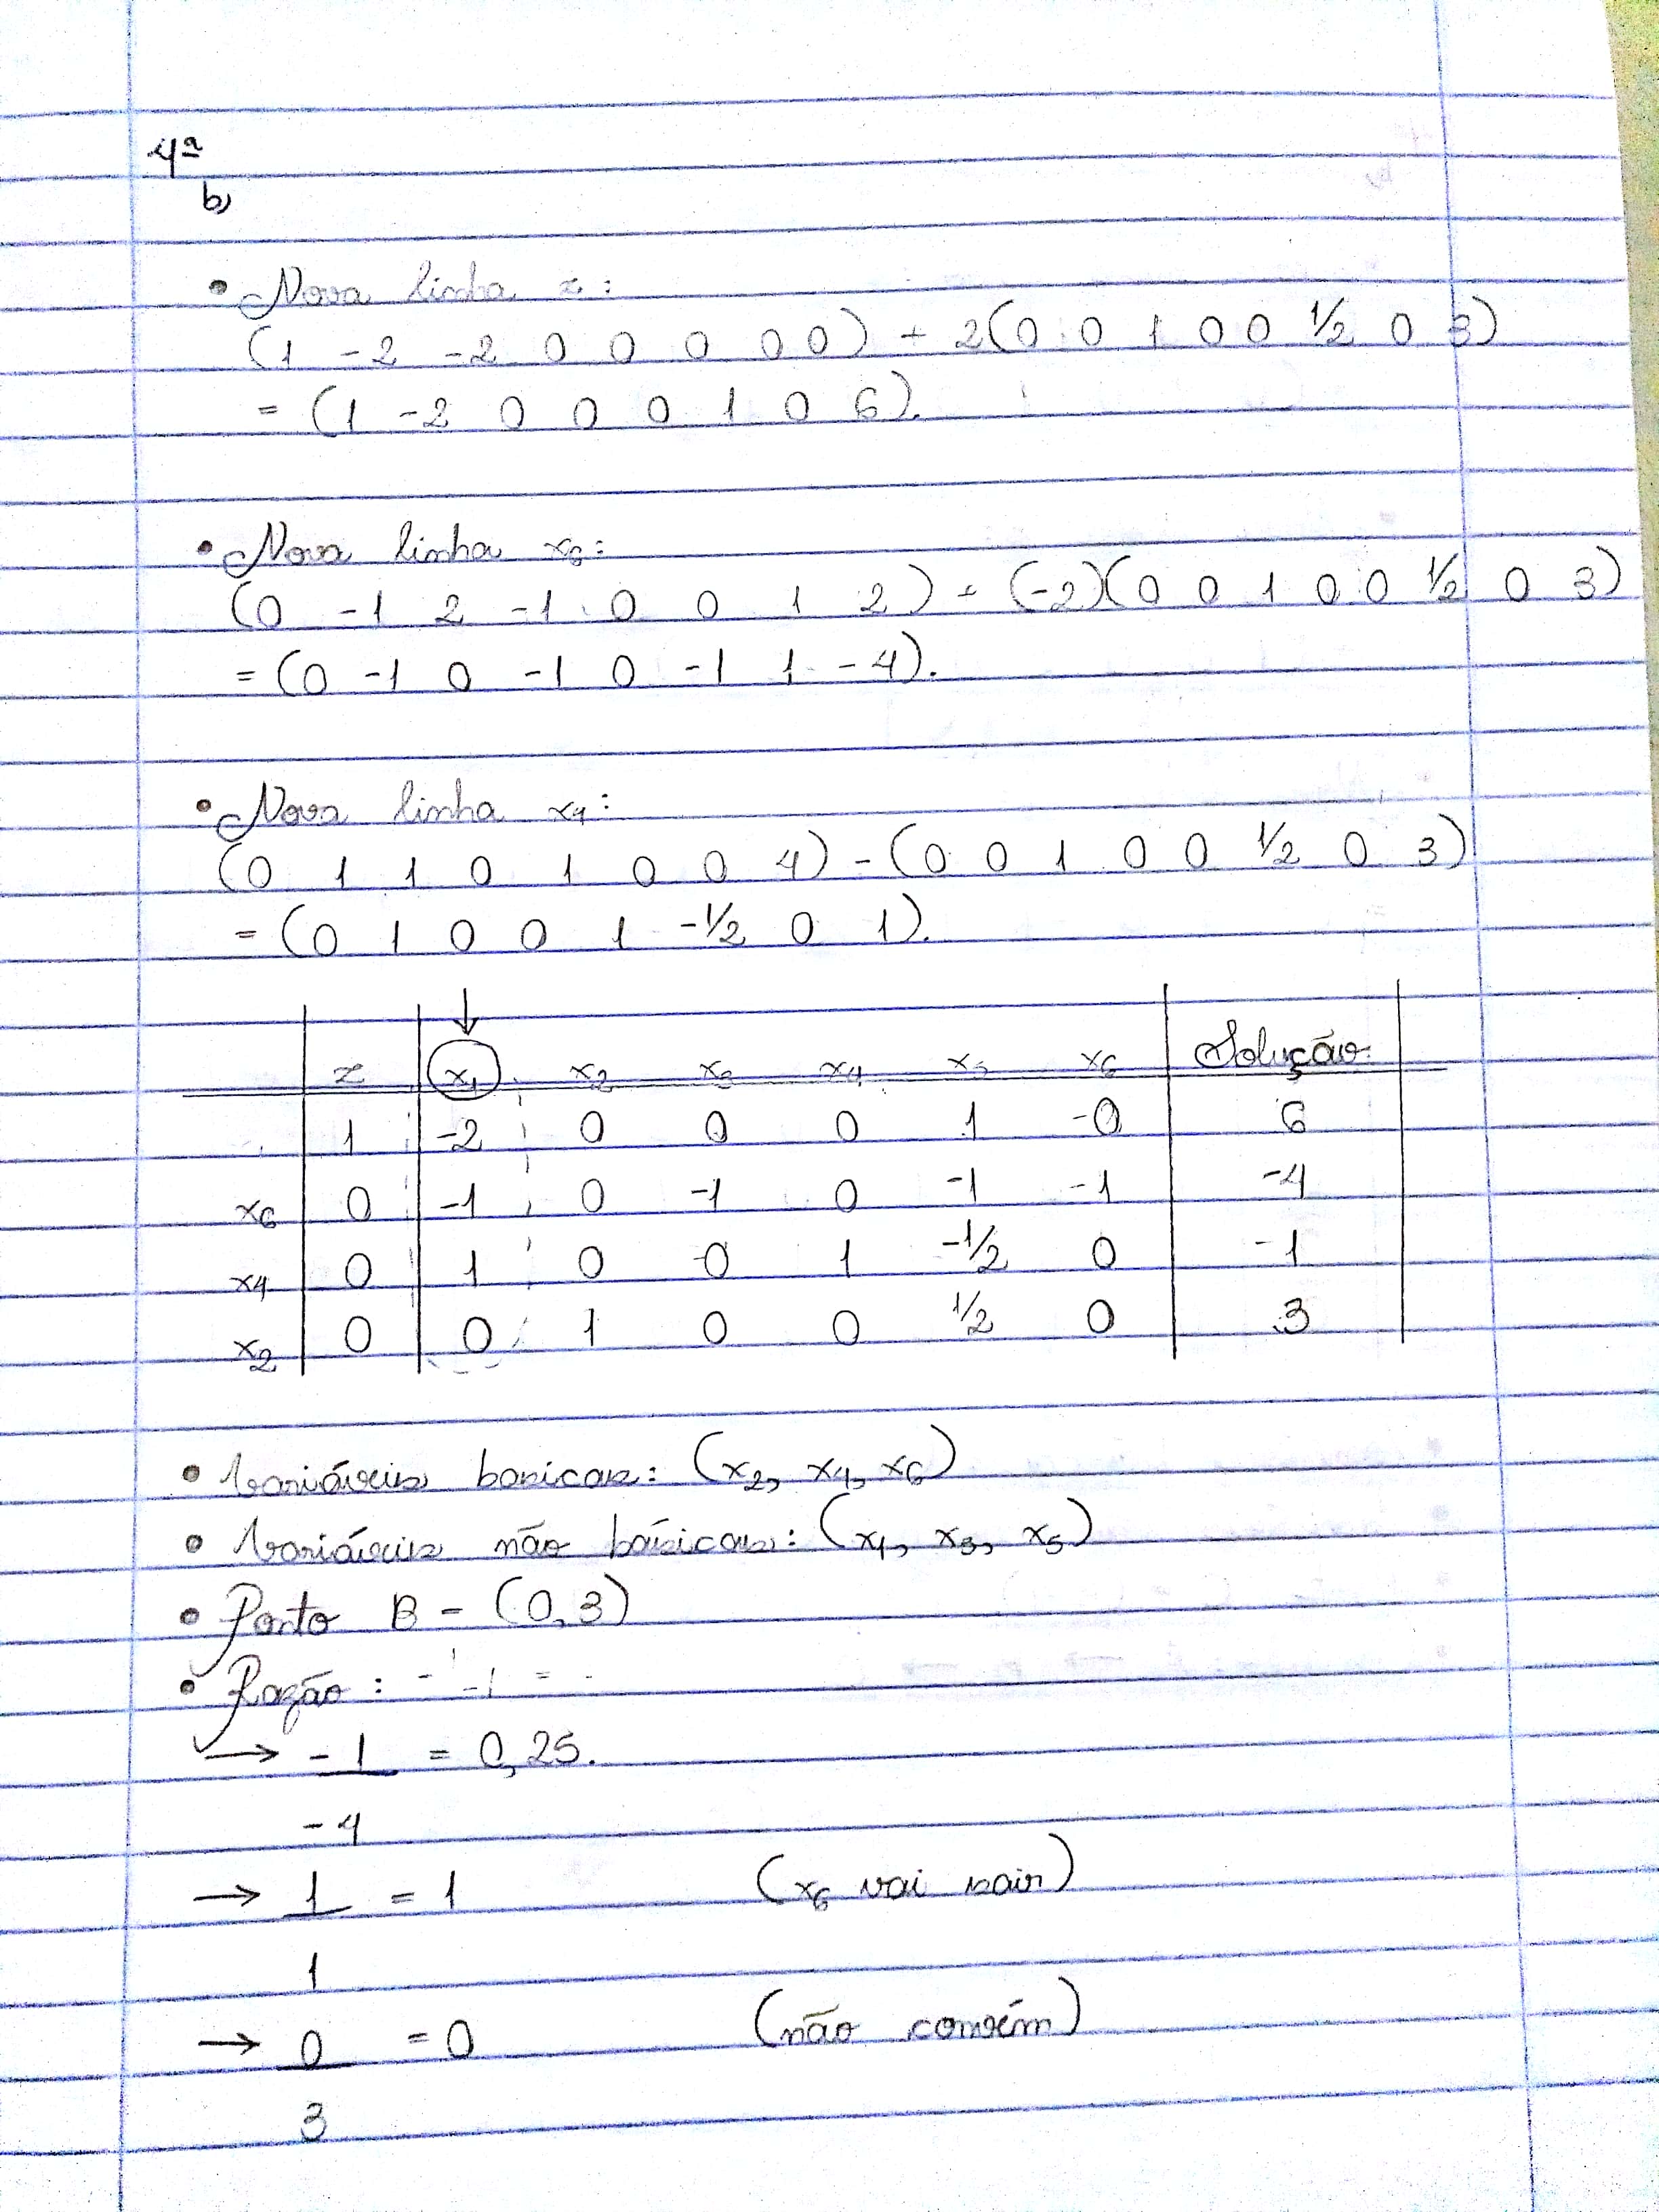 4ª
b)
• Nova linha z:
(1 -2 -2 0 0 0 0 0) + 2(0 0 1 0 0 1/2 0 3)
= (1 -2 0 0 0 1 0 6).
• Nova linha x6:
(0 -1 2 -1 0 0 1 2) + (-2)(0 0 1 0 0 1/2 0 3)
= (0 -1 0 -1 0 -1 1 -4).
• Nova linha x4:
(0 1 1 0 1 0 0 4) - (0 0 1 0 0 1/2 0 3)
= (0 1 0 0 1 -1/2 0 1).
z x1 x2 x3 x4 x5 x6 Solução
1 -2 0 0 0 1 -0 6
x6 0 -1 0 -1 0 -1 -1 -4
x4 0 1 0 0 1 -1/2 0 -1
x2 0 0 1 0 0 1/2 0 3
• Variáveis basicas: (x2, x4, x6)
• Variáveis não básicas: (x1, x3, x5)
• Ponto B = (0,3)
• Razão:
→ -1 = 0,25.
-4
→ 1 = 1 (x6 vai sair)
1
→ 0 = 0 (não convém)
3